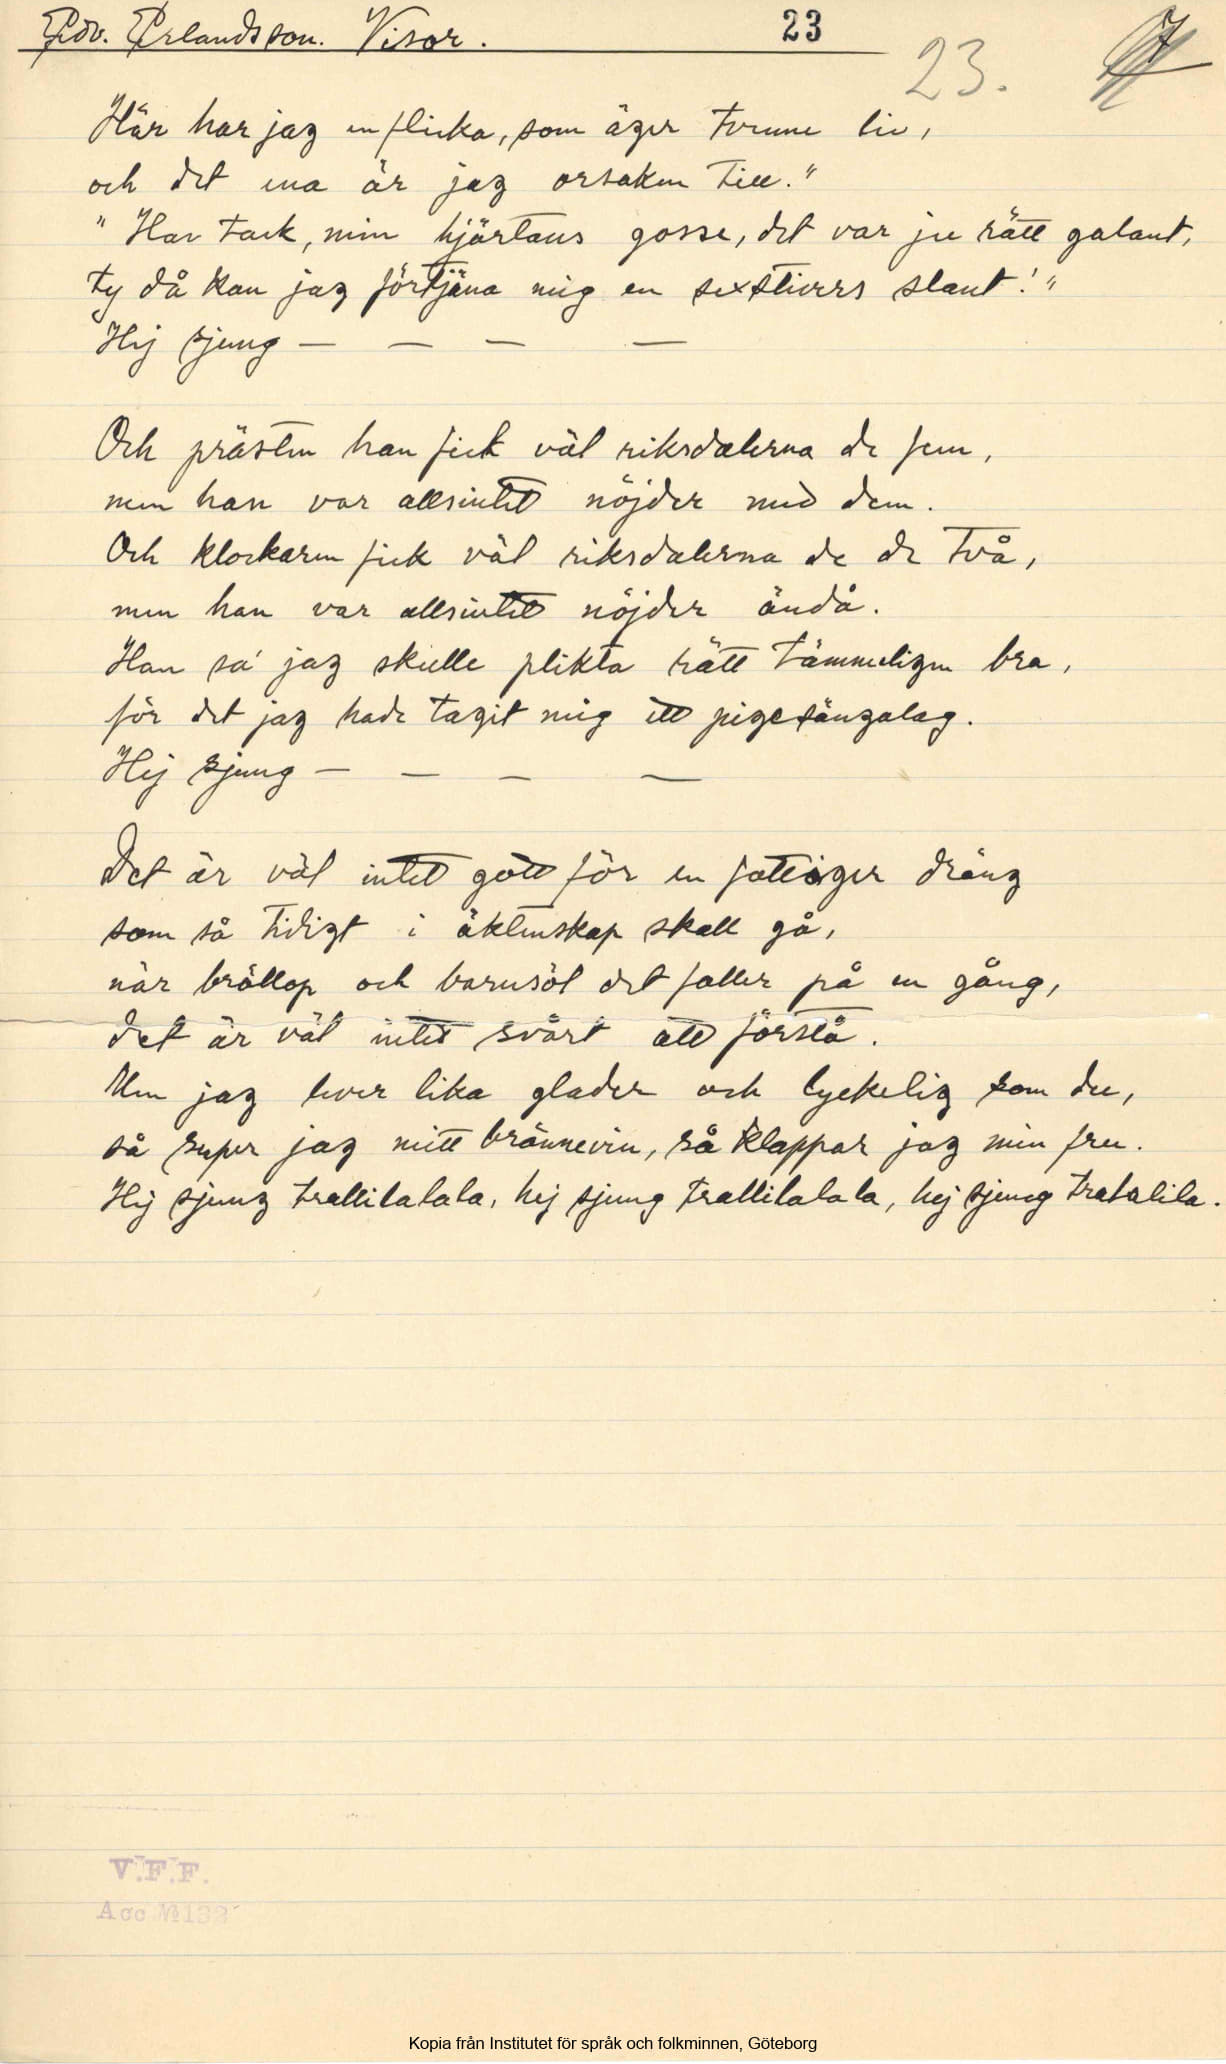 Edv. Erlandsson. Visor. 23
23.
Här har jag en flicka, som äger tvenne liv,
och det ena är jag orsaken till."
"Hav tack, min hjärtans gosse, det var ju rätt galant,
ty då kan jag förtjäna mig en sexstivers slant!"
Hej sjung — — — —
Och prästen han fick väl riksdalerna de fem,
men han var allsintet nöjder med dem.
Och klockaren fick väl riksdalerna de de två,
men han var allsintet nöjder ändå.
Han sa' jag skulle plikta rätt tämmeligen bra,
för det jag hade tagit mig ett pigesängalag.
Hej sjung — — — —
Det är väl intet gott för en fattiger dräng
som så tidigt i äktenskap skall gå,
när bröllop och barnsöl det faller på en gång,
det är väl intet svårt att förstå.
Men jag lever lika glader och lyckelig som du,
så super jag mitt brännevin, så klappar jag min fru.
Hej sjung trallilalala, hej sjung trallilalala, hej sjung tralalila.
V.F.F.
Acc №
Kopia från Institutet för språk och folkminnen, Göteborg